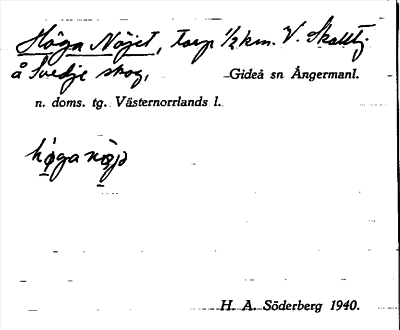 Höga Nöjet, torp ½ km. V. Skalltj.
å Svedje skog, Gideå sn Ångermanl.
n. doms. tg. Västernorrlands l.
höga nöjə
H. A. Söderberg 1940.